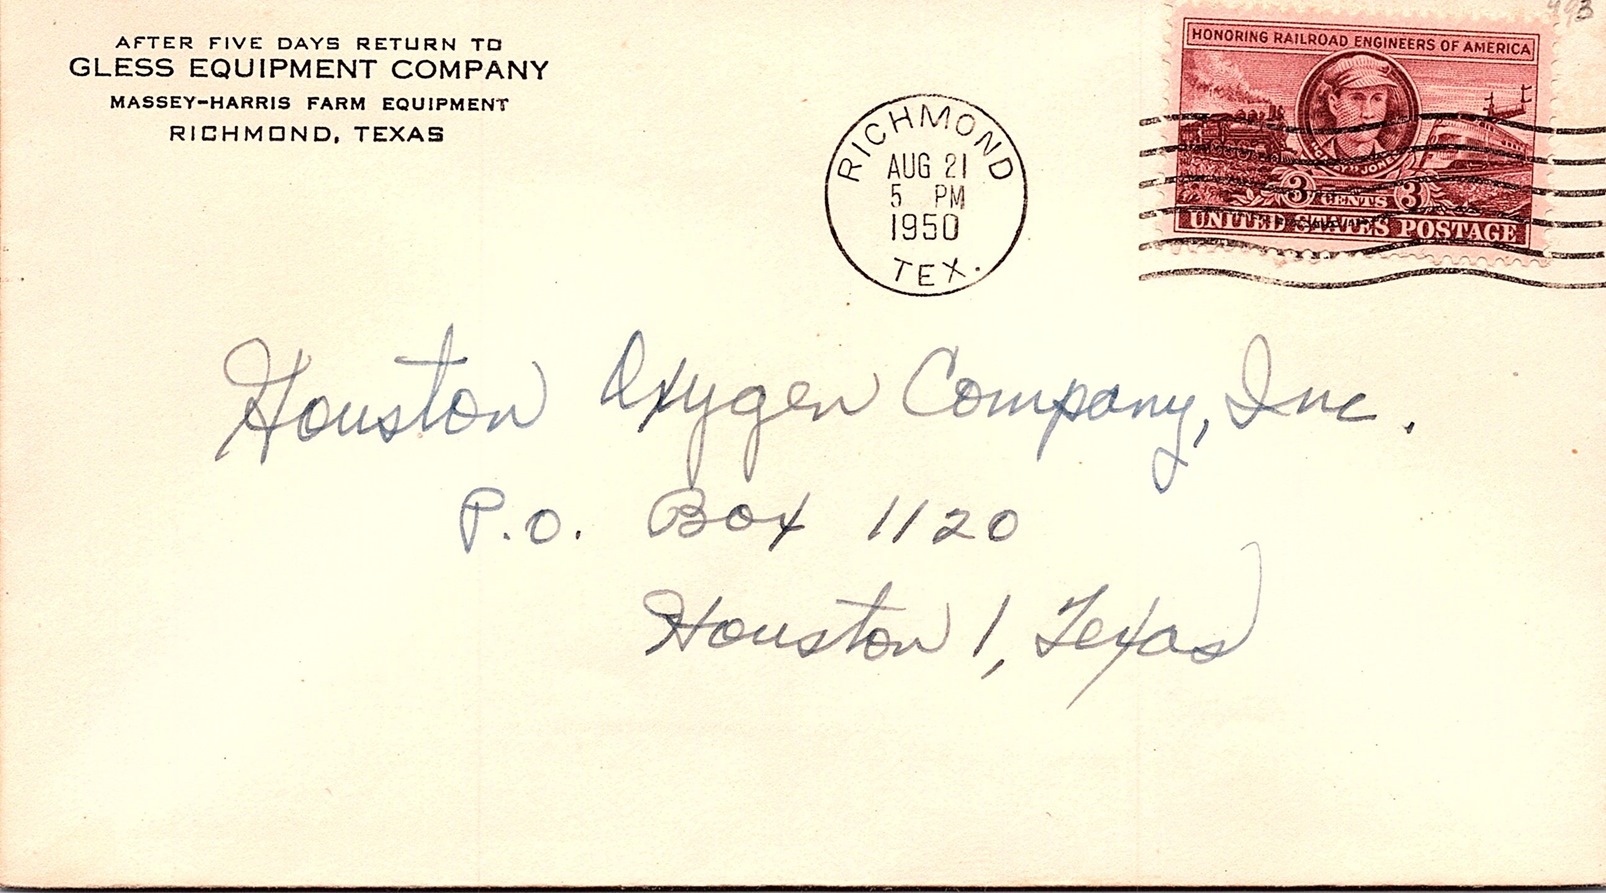 AFTER FIVE DAYS RETURN TO
GLESS EQUIPMENT COMPANY
MASSEY-HARRIS FARM EQUIPMENT
RICHMOND, TEXAS
RICHMOND
AUG 21
5 PM
1950
TEX.
HONORING RAILROAD ENGINEERS OF AMERICA
3 CENTS 3
UNITED STATES POSTAGE
Houston Oxygen Company, Inc.
P.O. Box 1120
Houston 1, Texas